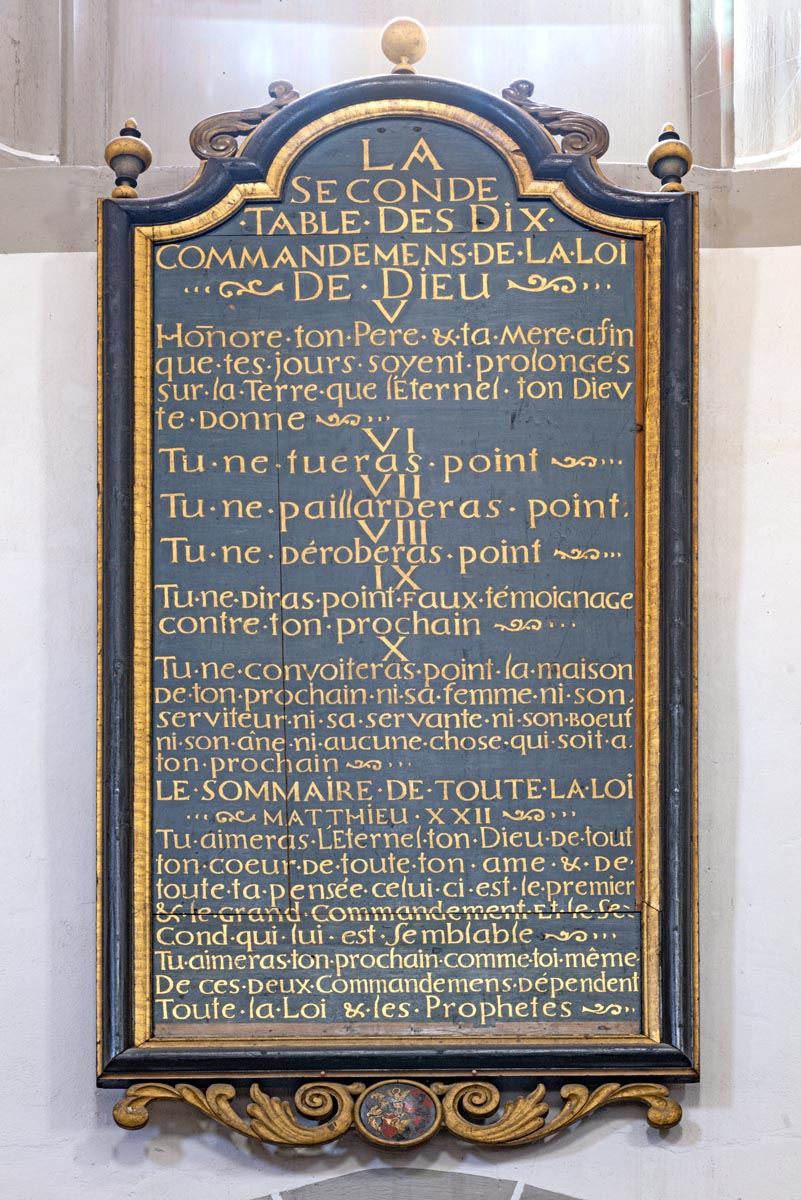 LA
SECONDE
TABLE·DES DIX·
COMMANDEMENS·DE·LA·LOI
DE·DIEU
V
Hoñore·ton·Pere·&·ta·Mere·afin
que·tes·jours·soyent·prolongés
sur·la·Terre·que l'Eternel·ton Diev
te·Donne
VI
Tu·ne·tueras·point
VII
Tu·ne·paillarderas·point.
VIII
Tu·ne·déroberas·point
IX
Tu·ne·Diras·point·Faux·témoignage
contre·ton·prochain
X
Tu·ne·convoiteras·point·la·maison
De·ton·prochain·ni·sa·femme·ni·son·
serviteur·ni·sa·servante·ni·son·Boeuf
ni·son·âne·ni·aucune·chose·qui·soit·a·
ton·prochain
LE·SOMMAIRE·DE·TOUTE·LA·LOI
MATTHIEU·XXII
Tu·aimeras·L'Eternel·ton·Dieu·de·tout
ton·coeur·de·toute·ton·ame·&·De·
toute·ta·pensée·celui·ci·est·le·premier
&·le·grand·Commandement·Et·le·Se-
Cond·qui·lui·est·Semblable
Tu·aimeras·ton·prochain·comme·toi·même
De ces·Deux·Commandemens·Dépendent
Toute·la·Loi·&·les·Prophetes